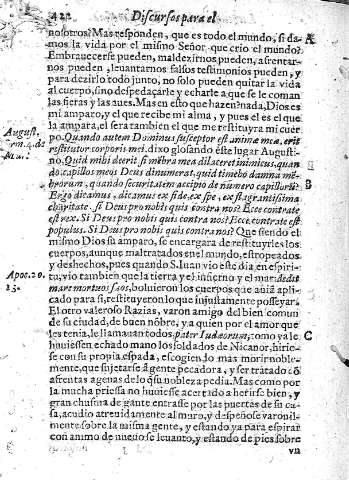 422 Discursos para el
nosotros? Mas responden, que es todo el mundo, si da- A
mos la vida por el mismo Señor que crio el mundo?
Embrauecerse pueden, maldezirnos pueden, afrentar-
nos pueden, leuantarnos falsos testimonios pueden, y
para dezirlo todo junto, no solo pueden quitar la vida
al cuerpo, sino despedaçarle y echarle a que se le coman
las fieras y las aues. Mas en esto que hazen? nada, Dios es
mi amparo, y el que recibe mi alma, y pues el es el que
la ampara, el sera tambien el que me restituyra mi cuer
August. po. Quando autem Dominus susceptor est animæ meæ, erit
restitutor corporis mei. dixo glosando este lugar Augusti-
no. Quid mihi deerit si mẽbra mea dilaceret inimicus, quan
do capillos meos Deus dinumerat, quid timebo damna mẽ-
brorum, quando securitatem accipio de numero capillorũ? B
Ergo dicamus, dicamus ex fide, ex spe, ex flagrantissima
charitate. Si Deus pro nobis quis contra nos? Ecce contrate
est rex. Si Deus pro nobis quis contra nos? Ecce contrate est
populus. Si Deus pro nobis quis contra nos? Que siendo el
mismo Dios su amparo, se encargara de restituyrles los
cuerpos, aunque maltratados en el mundo, estropeados
y deshechos, pues quando S. Iuan vio este dia en espiri-
Apoc. 20. tu, vio tambien que la tierra y el infierno y el mar dedit
mare mortuos suos, boluieron los cuerpos que auiã apli-
cado para si, restituyeron lo que injustamente posseyan.
El otro valeroso Razias, varon amigo del bien comun
de su ciudad, de buen nõbre, y a quien por el amor que
les tenia, le llamauan todos pater Iudæorum, como ya le C
huuiessen echado mano los soldados de Nicanor, hirio-
se con su propia espada, escogiendo mas morir noble-
mente, que sujetarse a gente pecadora, y ser tratado cõ
afrentas agenas de lo q̃ su nobleza pedia. Mas como por
la mucha priessa no huuiesse acertado a herirse bien, y
gran chusma de gente entrasse por las puertas de su ca-
sa, acudio atreuidamente al muro, y despeñose varonil-
mente sobre la misma gente, y estando ya para espirar
con animo de nueuo se leuanto, y estando de pies sobre
vn